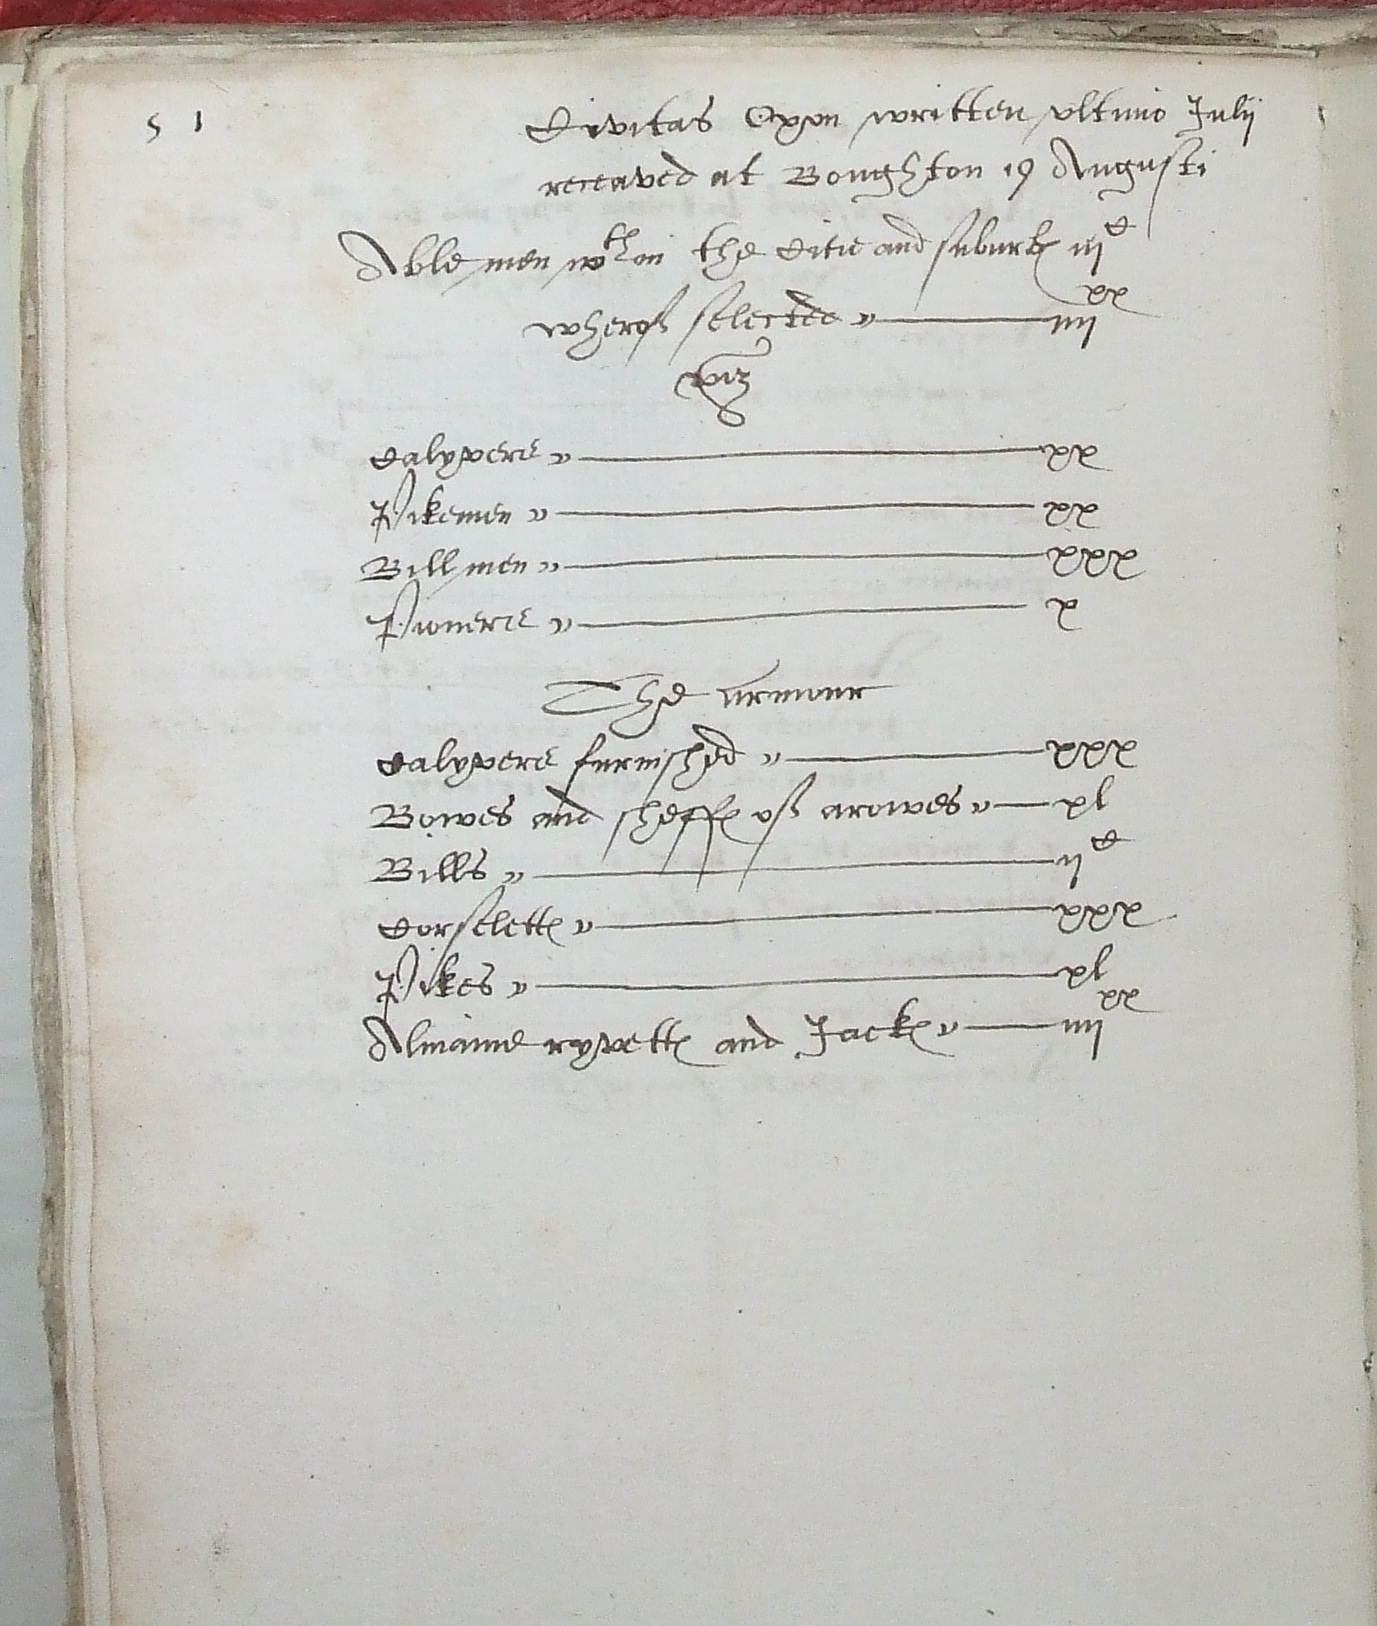 51
Civitas Oxon written ultimo Julij
receaved at Boughton 19 Augusti
Able men wthin the Citie and suburbes iijC
wherof selected xx iiij
viz
Calyvers xx
Pikemen xx
Billmen xxx
Pioners x
The armour
Calyvers furnished xxx
Bowes and sheffes of arowes xl
Bills ijC
Corselettes xxx
Pikes xl
Almaine ryvettes and Jackes xx iiij